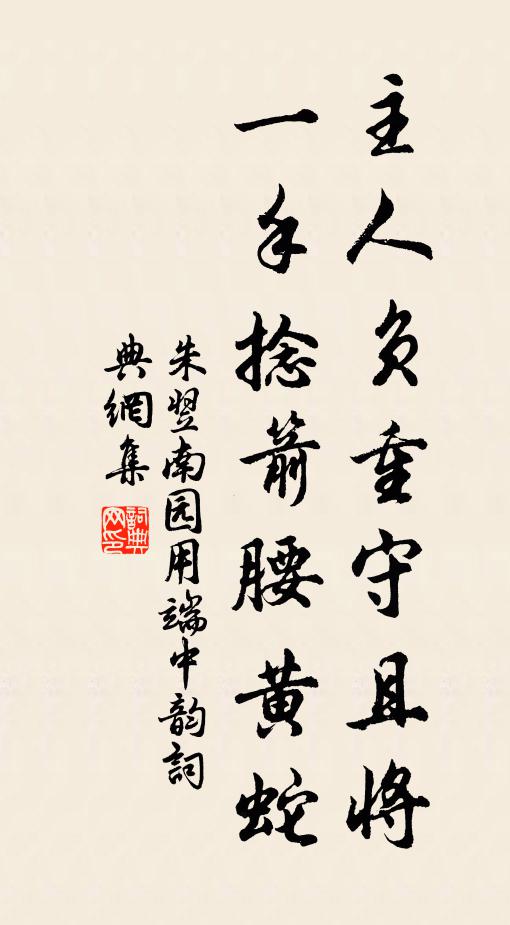 主人负重守且将
一手捻箭腰黄蛇
朱翌南园用端中韵詞
典網集
詞典网印